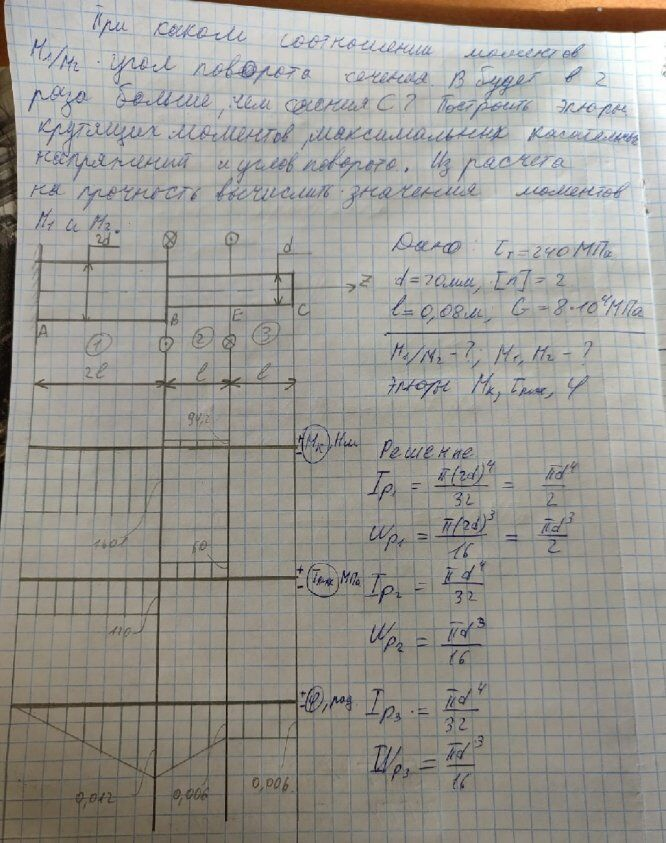 При каком соотношении моментов
M₁/M₂ угол поворота сечения B будет в 2
раза больше, чем сечения C? Построить эпюры
крутящих моментов, максимальных касательных
напряжений и углов поворота. Из расчета
на прочность вычислить значения моментов
M₁ и M₂.
2d
d
Z
A
B
E
C
① ② ③
2l
l
l
Дано: τт = 240 МПа
d = 20мм, [n] = 2
l = 0,08м, G = 8·10⁴ МПа
M₁/M₂ - ?; M₁, M₂ - ?
Эпюры Mк, τmax, φ
94,2
+
-
Mк, Нм
Решение
Ip₁ = π(2d)⁴/32 = πd⁴/2
Wp₁ = π(2d)³/16 = πd³/2
60
+
-
τmax, МПа
120
Ip₂ = πd⁴/32
Wp₂ = πd³/16
+
-
φ, рад
Ip₃ = πd⁴/32
Wp₃ = πd³/16
0,012
0,006
0,006